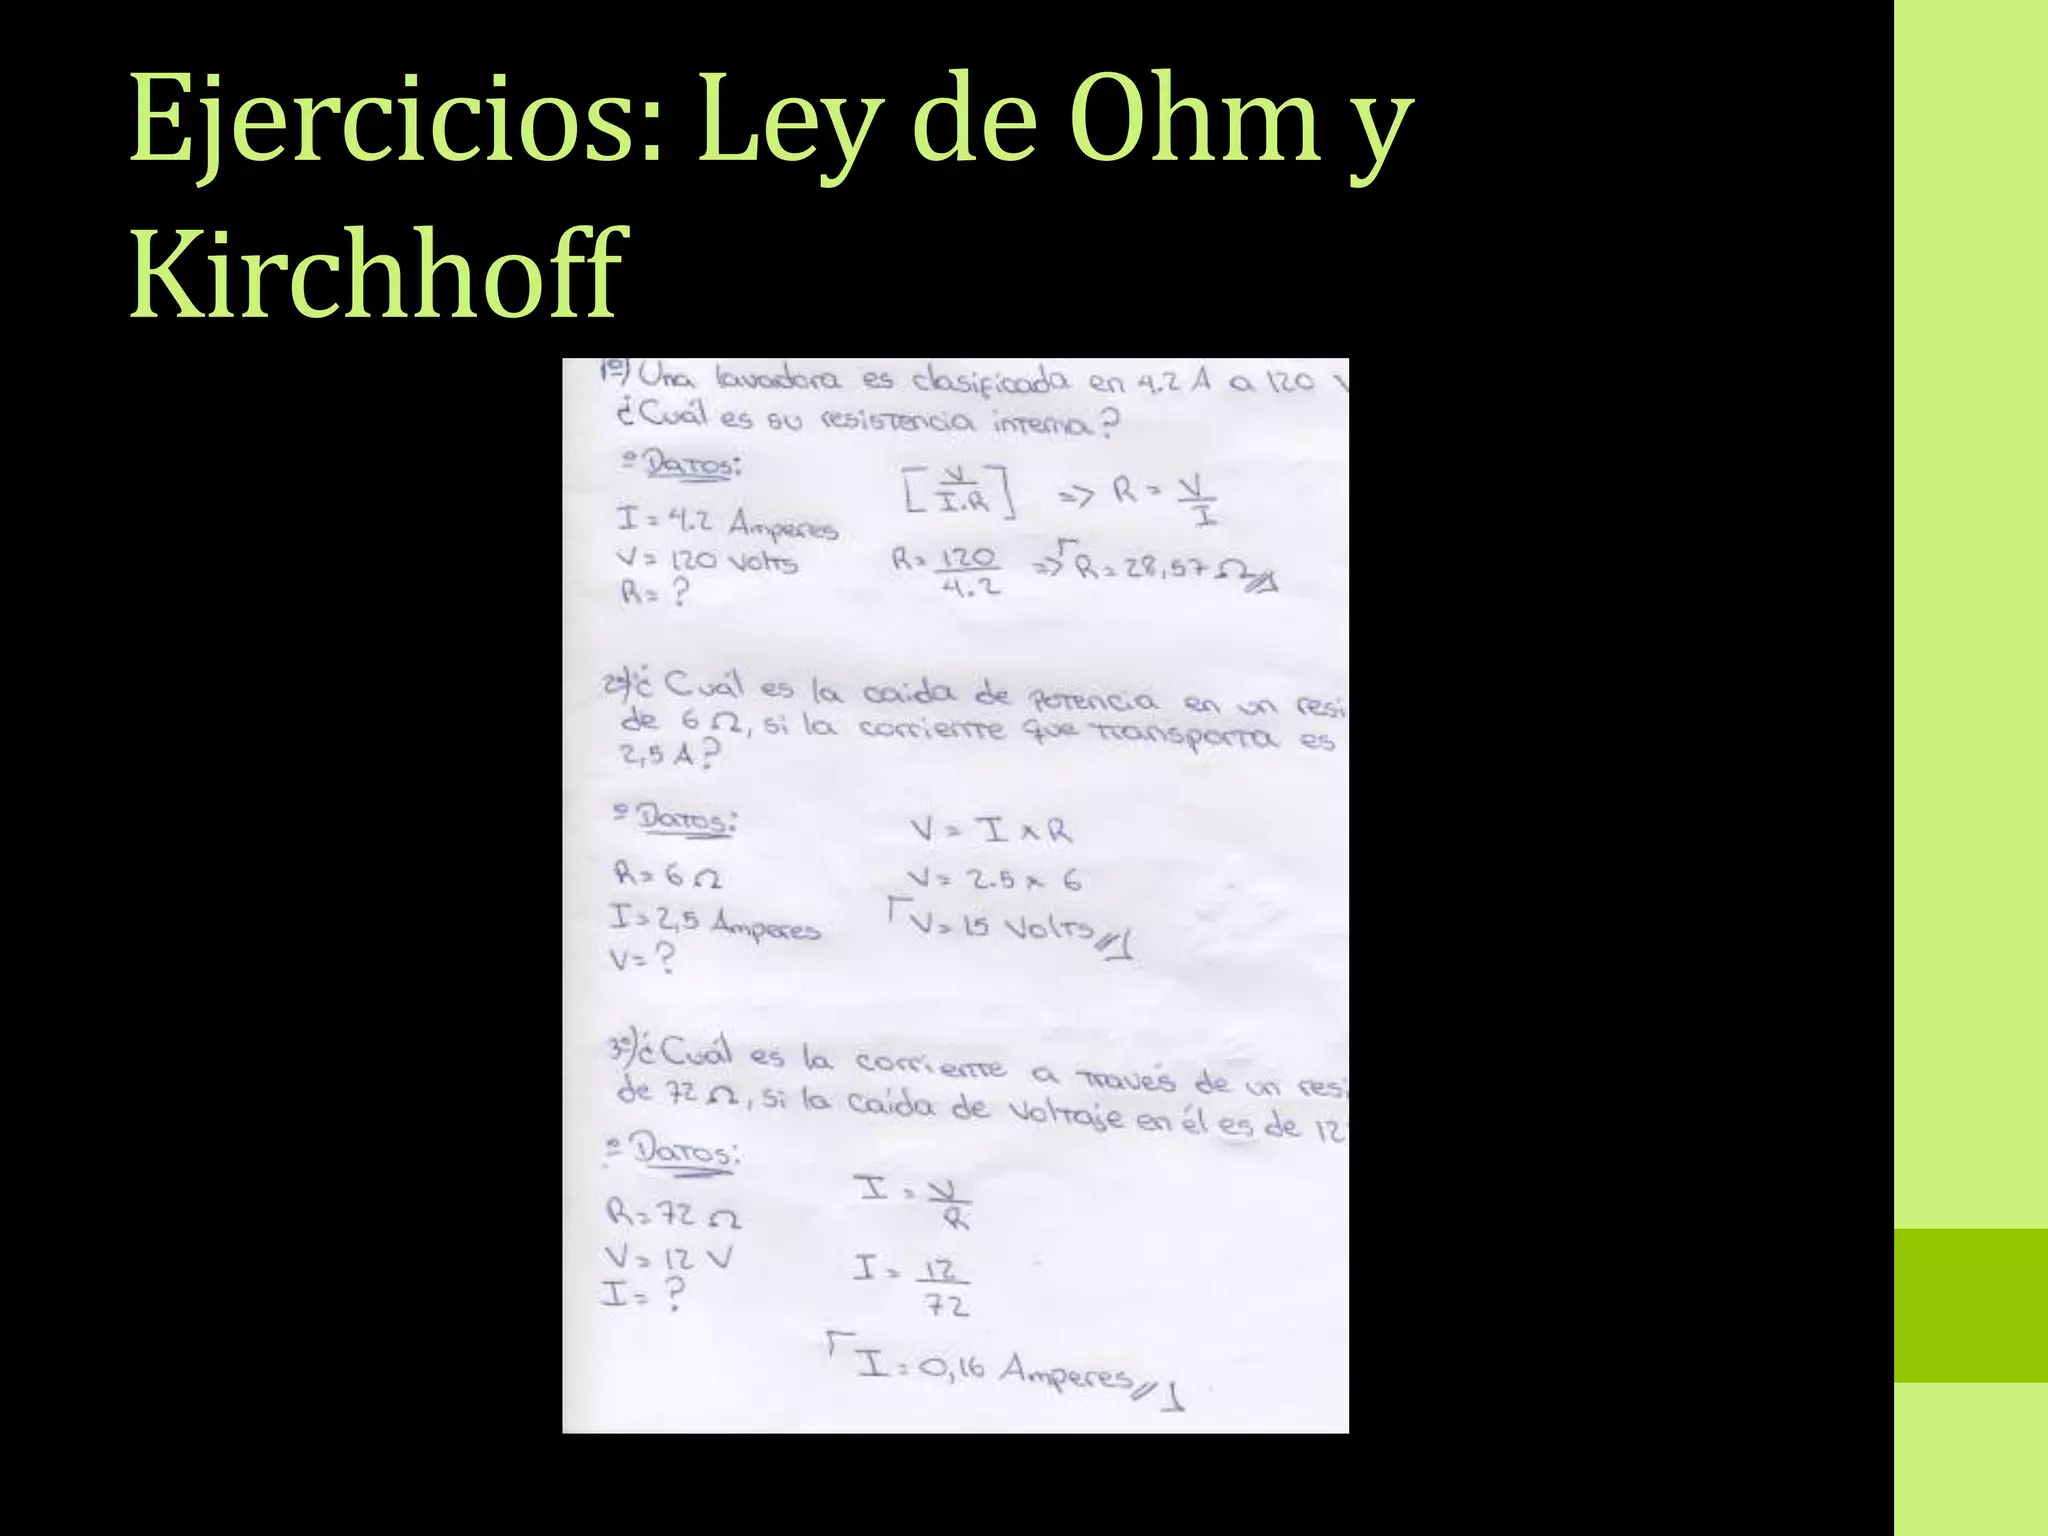 Ejercicios: Ley de Ohm y
Kirchhoff
1º) Una lavadora es clasificada en 4.2 A a 120 V
¿Cuál es su resistencia interna?
º Datos:
I = 4.2 Amperes
V = 120 Volts
R = ?
[V/I.R] => R = V/I
R = 120/4.2 => R = 28,57 Ω
2º) ¿Cuál es la caida de potencia en un resi
de 6 Ω, si la corriente que transporta es
2,5 A?
º Datos:
R = 6 Ω
I = 2,5 Amperes
V = ?
V = I x R
V = 2.5 x 6
V = 15 Volts
3º) ¿Cuál es la corriente a través de un resi
de 72 Ω, si la caída de voltaje en él es de 12
º Datos:
R = 72 Ω
V = 12 V
I = ?
I = V/R
I = 12/72
I = 0,16 Amperes